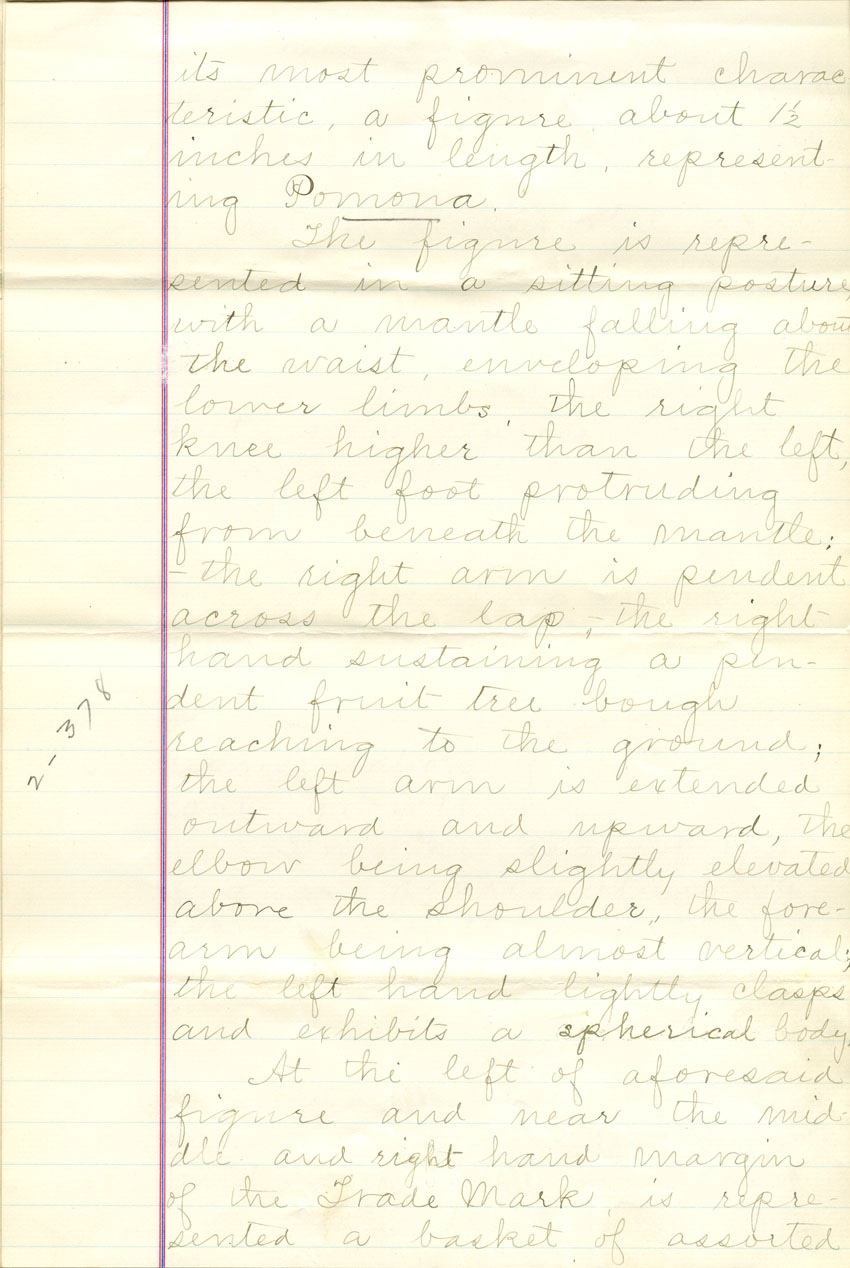 its most prominent charac
teristic, a figure about 1½
inches in length, represent-
ing Pomona.
The figure is repre-
sented in a sitting posture,
with a mantle falling about
the waist, enveloping the
lower limbs, the right
knee higher than the left,
the left foot protruding
from beneath the mantle;
- the right arm is pendent
across the lap;- the right
hand sustaining a pen-
dent fruit tree bough
reaching to the ground;
the left arm is extended
outward and upward, the
elbow being slightly elevated
above the shoulder, the fore-
arm being almost vertical;
the left hand lightly clasps
and exhibits a spherical body.
At the left of aforesaid
figure and near the mid-
dle and right hand margin
of the Trade Mark, is repre-
sented a basket of assorted
2-378